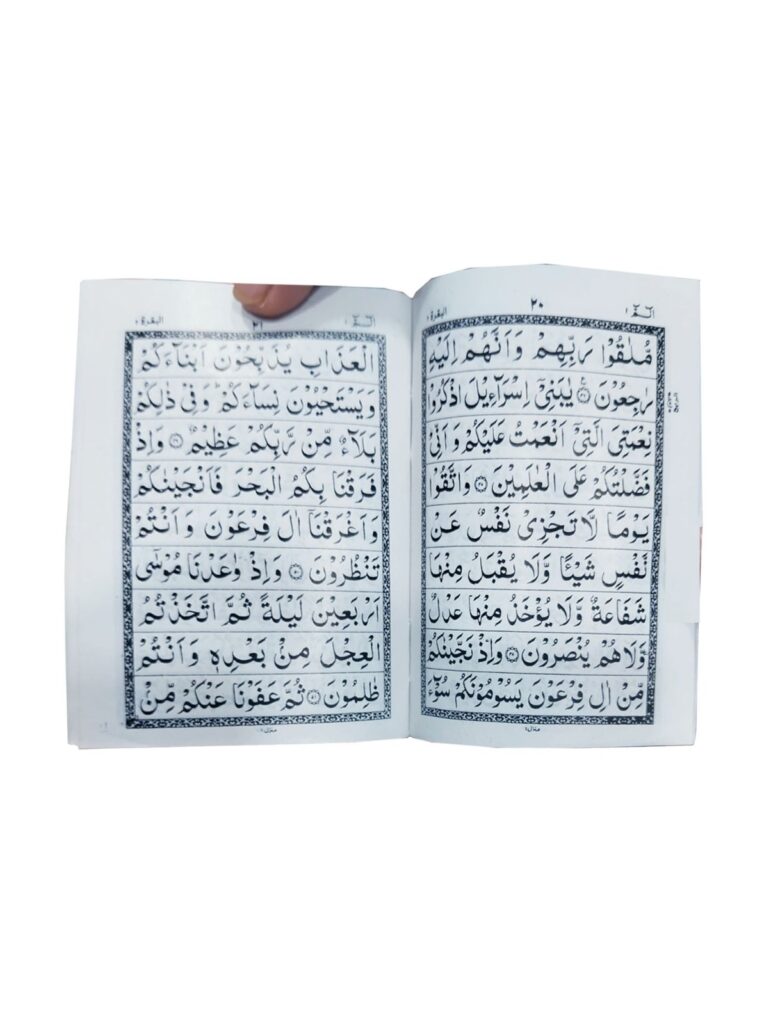 البقرة ٢
٢٠
الٓمّٓ ١
مُّلٰقُوْا رَبِّهِمْ وَاَنَّهُمْ اِلَيْهِ
رٰجِعُوْنَ ۝٤٦ يٰبَنِيْٓ اِسْرَآءِيْلَ اذْكُرُوْا
نِعْمَتِيَ الَّتِيْٓ اَنْعَمْتُ عَلَيْكُمْ وَاَنِّيْ
فَضَّلْتُكُمْ عَلَى الْعٰلَمِيْنَ ۝٤٧ وَاتَّقُوْا
يَوْمًا لَّا تَجْزِيْ نَفْسٌ عَنْ
نَّفْسٍ شَيْـًٔا وَّلَا يُقْبَلُ مِنْهَا
شَفَاعَةٌ وَّلَا يُؤْخَذُ مِنْهَا عَدْلٌ
وَّلَا هُمْ يُنْصَرُوْنَ ۝٤٨ وَاِذْ نَجَّيْنٰكُمْ
مِّنْ اٰلِ فِرْعَوْنَ يَسُوْمُوْنَكُمْ سُوْٓءَ
منزل ١
البقرة ٢
٢١
الٓمّٓ ١
الْعَذَابِ يُذَبِّحُوْنَ اَبْنَآءَكُمْ
وَيَسْتَحْيُوْنَ نِسَآءَكُمْ ؕ وَفِيْ ذٰلِكُمْ
بَلَآءٌ مِّنْ رَّبِّكُمْ عَظِيْمٌ ۝٤٩ وَاِذْ
فَرَقْنَا بِكُمُ الْبَحْرَ فَاَنْجَيْنٰكُمْ
وَاَغْرَقْنَآ اٰلَ فِرْعَوْنَ وَاَنْتُمْ
تَنْظُرُوْنَ ۝٥٠ وَاِذْ وٰعَدْنَا مُوْسٰٓى
اَرْبَعِيْنَ لَيْلَةً ثُمَّ اتَّخَذْتُمُ
الْعِجْلَ مِنْۢ بَعْدِهٖ وَاَنْتُمْ
ظٰلِمُوْنَ ۝٥١ ثُمَّ عَفَوْنَا عَنْكُمْ مِّنْۢ
منزل ١